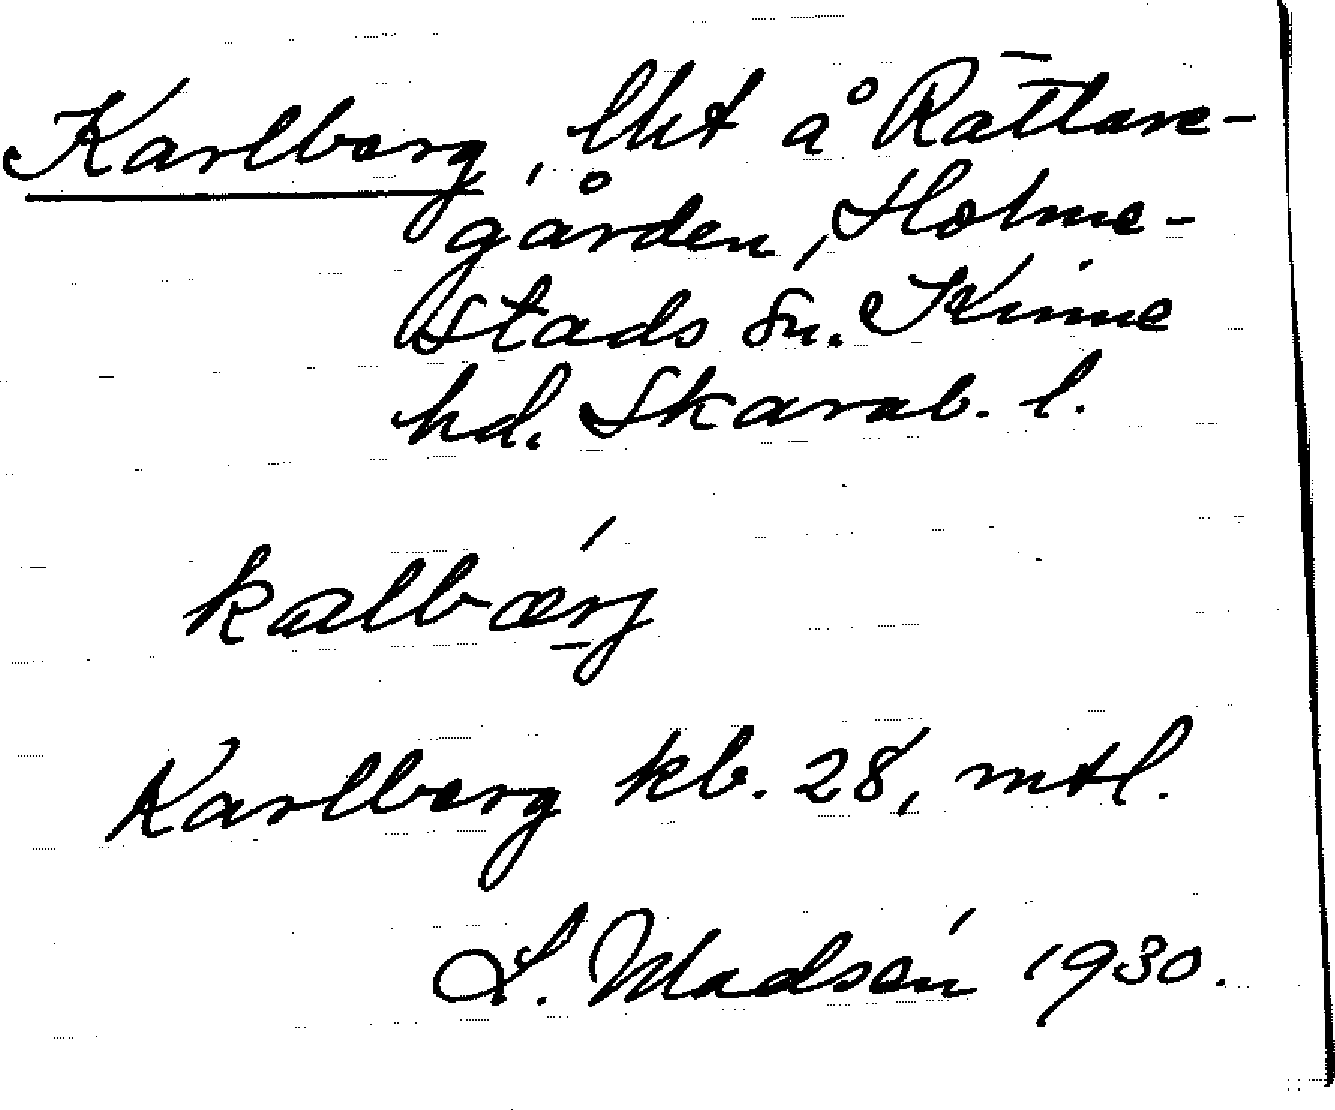 Karlberg, lht å Rättare-
gården, Holme-
stads sn. Kinne
hd. Skarab. l.
kalbærj
Karlberg kb. 28, mtl.
S. Madsén 1930.